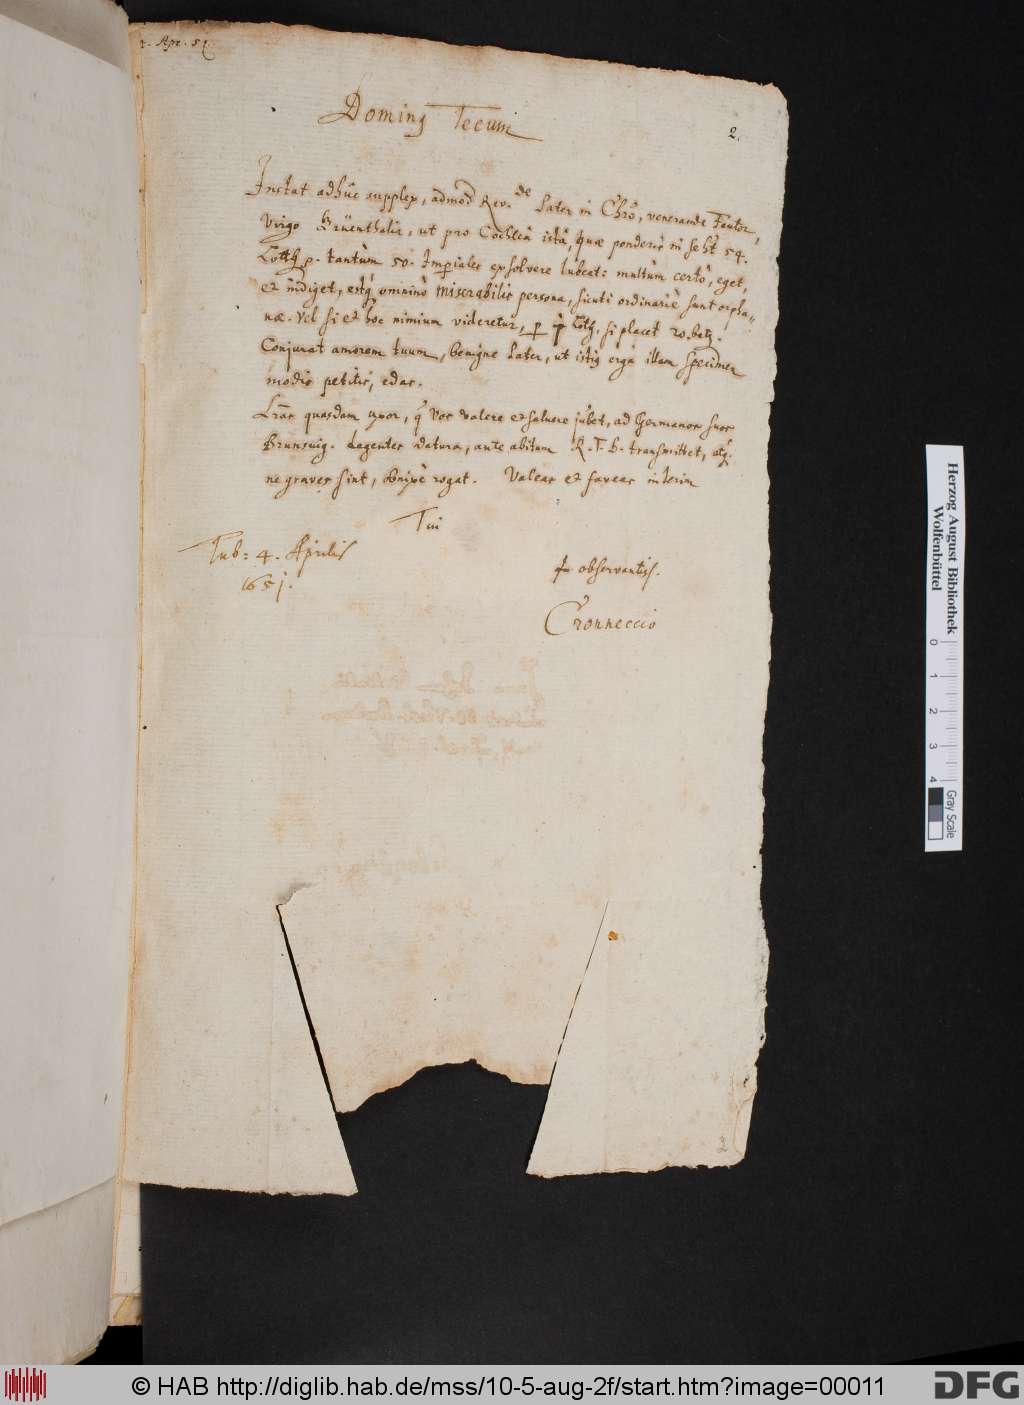 4. Apr. 51.
Dominus Tecum
2.
Instat adhuc supplex, admod Rev.de Pater in Chro, venerande Fautor,
Virgo Brüenthalis, ut pro Cochleâ istâ, quae ponderis in se ht 54.
Lotth p. tantùm 50. Imperiales exsolvere lubeat: multùm certò, eget,
et indiget, estq omninò miserabilis persona, sicuti ordinariè sunt orpha-
nae. Vel si et hoc nimium videretur, p Loth, si placet 20. betz.
Conjurat amorem tuum, benigne Pater, ut istis ergà illam specimen
modis petitis, edas.
Lras quasdam uxor, q Vos valere et salvere jubet, ad Germanos suos
Brunsvig. degentes datura, ante abitum R. T. b. transmittet, atq
ne graves sint, obnixè rogat. Valeas et faveas interim
Tui
Tub: 4. Aprilis
1651.
observantiss.
Cronneccio
Herzog August Bibliothek
Wolfenbüttel
0 1 2 3 4
Gray Scale
© HAB http://diglib.hab.de/mss/10-5-aug-2f/start.htm?image=00011
DFG